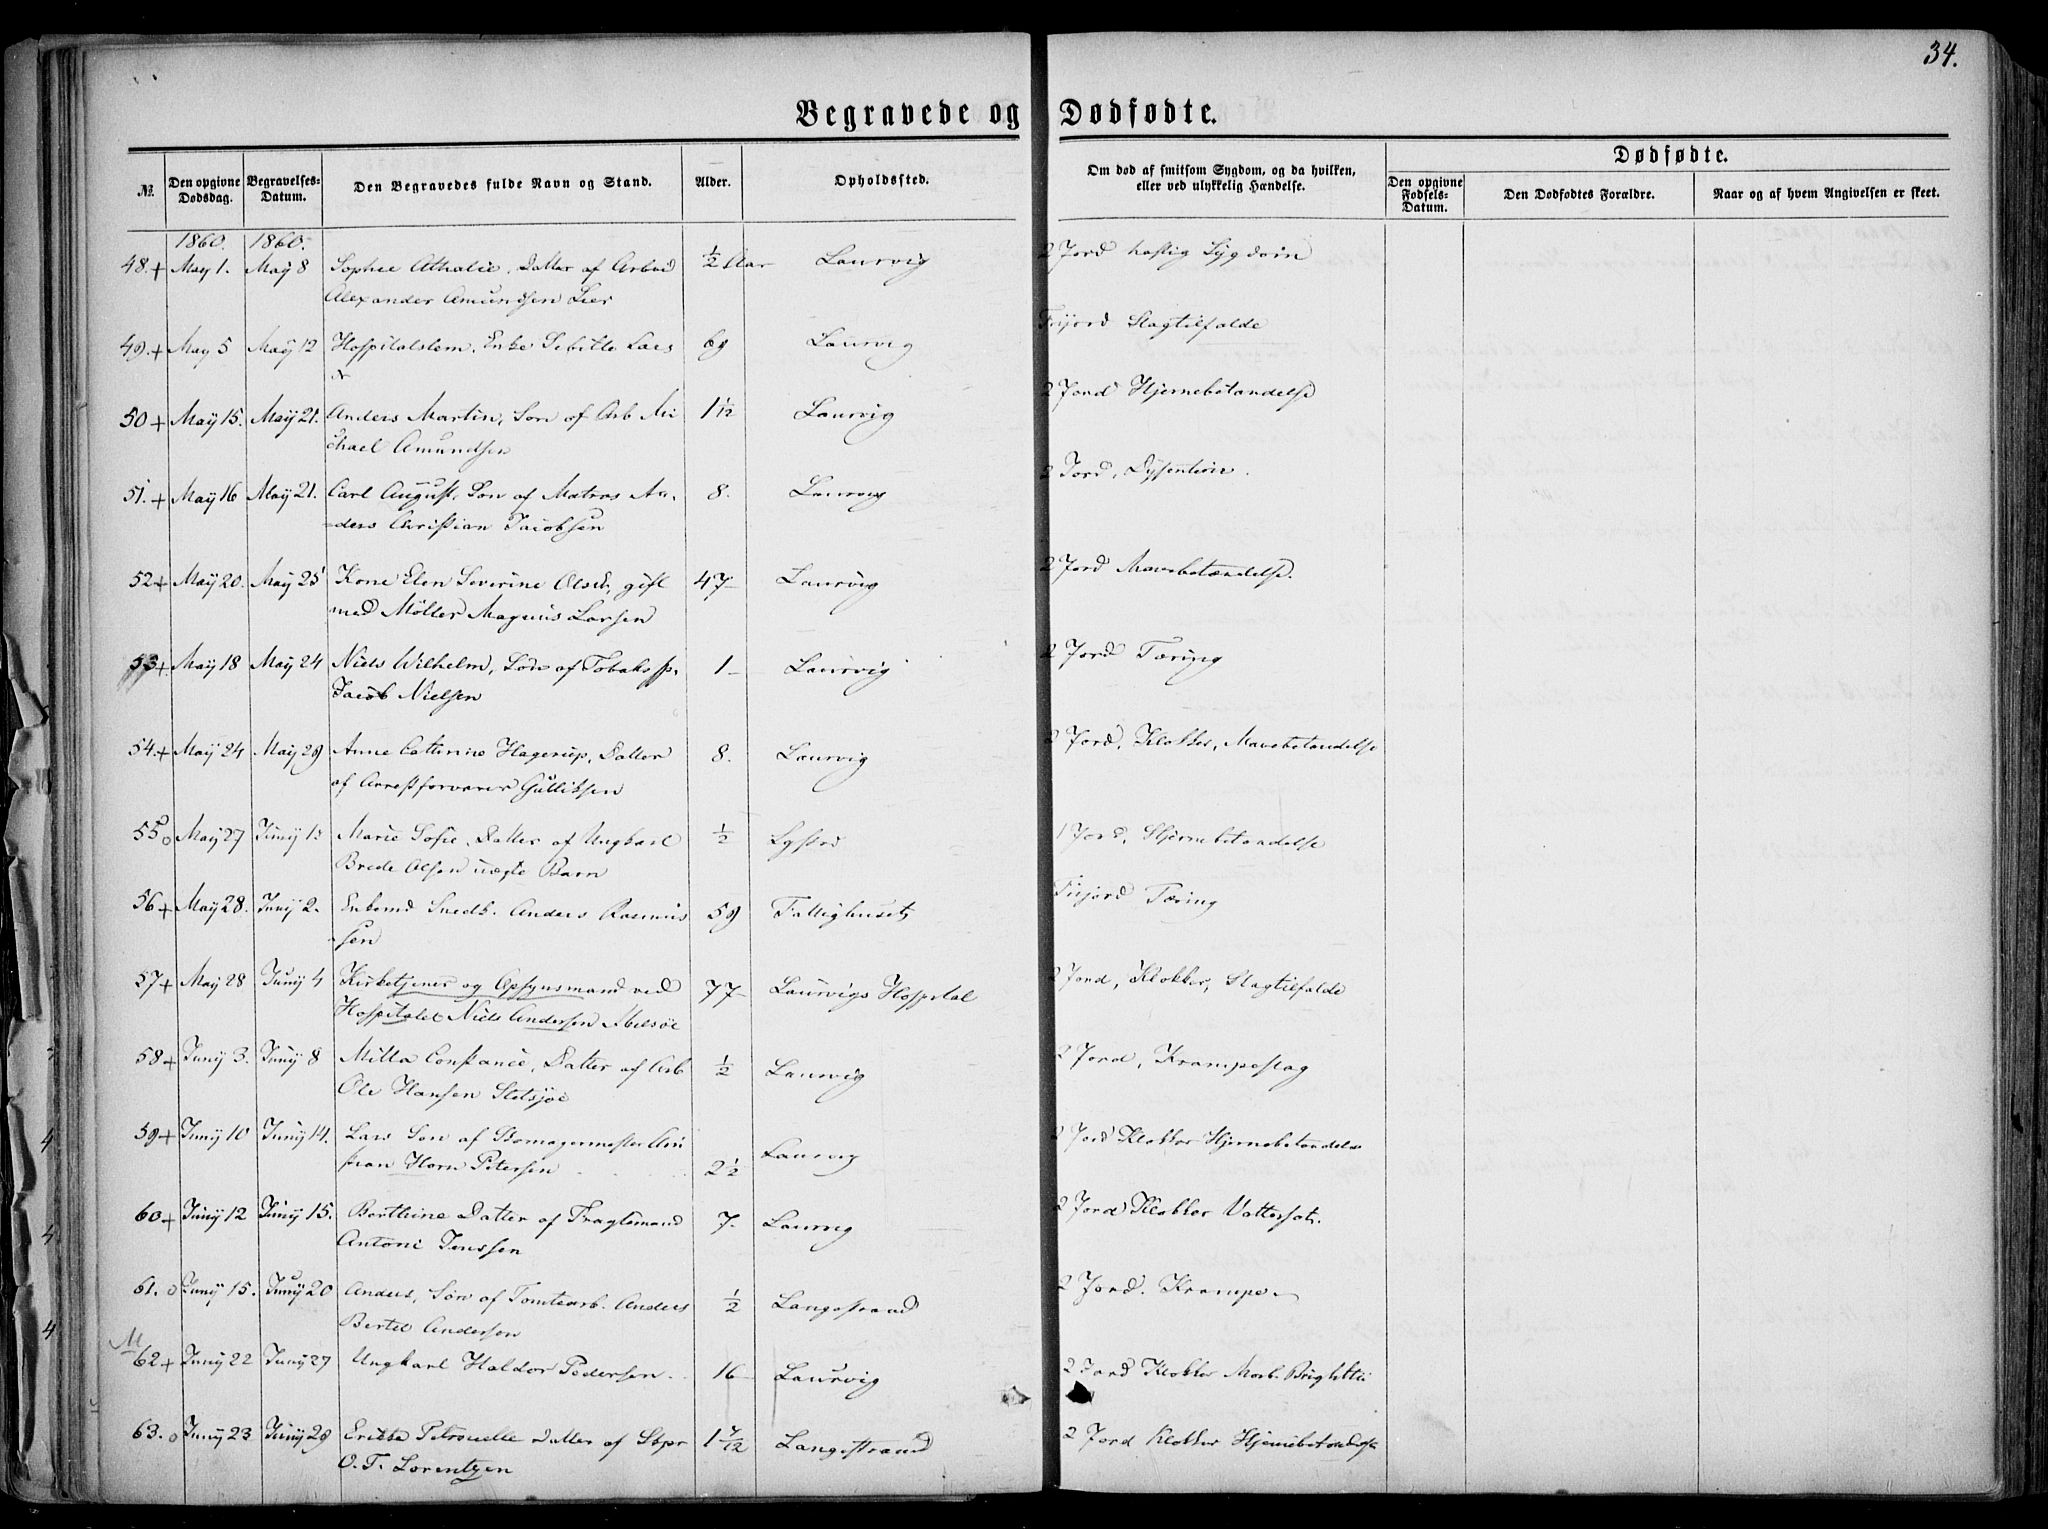 34.
Begravede og Dødfødte.
№
Den opgivne Dødsdag.
Begravelses-Datum.
Den Begravedes fulde Navn og Stand.
Alder.
Opholdssted.
Om død af smitsom Sygdom, og da hvilken, eller ved ulykkelig Hændelse.
Dødfødte.
Den opgivne Fødsels-Datum.
Den Dødfødtes Forældre.
Naar og af hvem Angivelsen er skeet.
1860. 1860.
48.+ May 1. May 8 Sophie Athalie, Datter af Arbeid ½ Aar Laurvig 2 Jord hastig Sygdom
Alexander Amundsen Lier
49.+ May 5 May 12 Hospitalslem, Enke Sibille Lars 69 Laurvig Frijord Slagtilfælde
50+ May 15. May 21. Anders Martin, Søn af Arb Mi 1 1/12 Laurvig 2 Jord Hjernebetændelse
chael Amundsen
51.+ May 16 May 21. Carl August, Søn af Matros An- 8. Laurvig 2 Jord, Dysenterie.
=ders Christian Jacobsen
52+ May 20. May 25 Kone Elen Severine Olsdt, gift 47 Laurvig 2 Jord Mavebetændelse.
med Møller Magnus Larsen
53+ May 18 May 24 Niels Wilhelm, Søn af Tobaksp. 1 Laurvig 2 Jord Tæring
Jacob Nielsen
54.+ May 24 May 29 Anne Catherine Hagerup, Datter 8. Laurvig 2 Jord, Klokker, Mavebetændelse
af Arrestforvarer Gulliksen
55 o May 27 Juny 1 Marie Sofie, Datter af Ungkarl ½ 1 Jord, Hjernebetændelse
Brede Olsen uægte Barn
56+ May 28. Juny 2. Enkemd Snedk. Anders Rasmus 59 Fattighuset Frijord Tæring
-sen
57+ May 28 Juny 4 Kirketjener og Opsynsmand ved 77 Laurvigs Hospital 2 Jord, Klokker, Slagtilfælde
Hospitalet Niels Andersen
58+ Juny 3. Juny 8 Milla Constance, Datter af Arb ½ Laurvig 2 Jord, Krampeslag
Ole Hansen
59+ Juny 10 Juny 14. Lars Søn af Garvermester 2½ Laurvig 2 Jord Klokker Hjernebetændelse
Horn Petersen
60+ Juny 12 Juny 15. Berthine Datter af Fragtemand 7. Laurvig 2 Jord Klokker Vattersot.
Antoni Jenssen
61. o Juny 15. Juny 20 Anders, Søn af Tomtearb. Anders ½ Langestrand 2 Jord. Krampe
Bertel Andersen
M
62+ Juny 22 Juny 27 Ungkarl Haldor Pedersen 16 Laurvig 2 Jord Klokker Morb. Brightii
63. o Juny 23 Juny 29 Petronelle Datter af Skpr 1 7/12 Langestrand 2 Jord Klokker Hjernebetændelse
O. T. Lorentzen